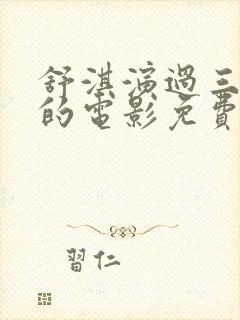 舒淇演過三
的電影免費
習仁